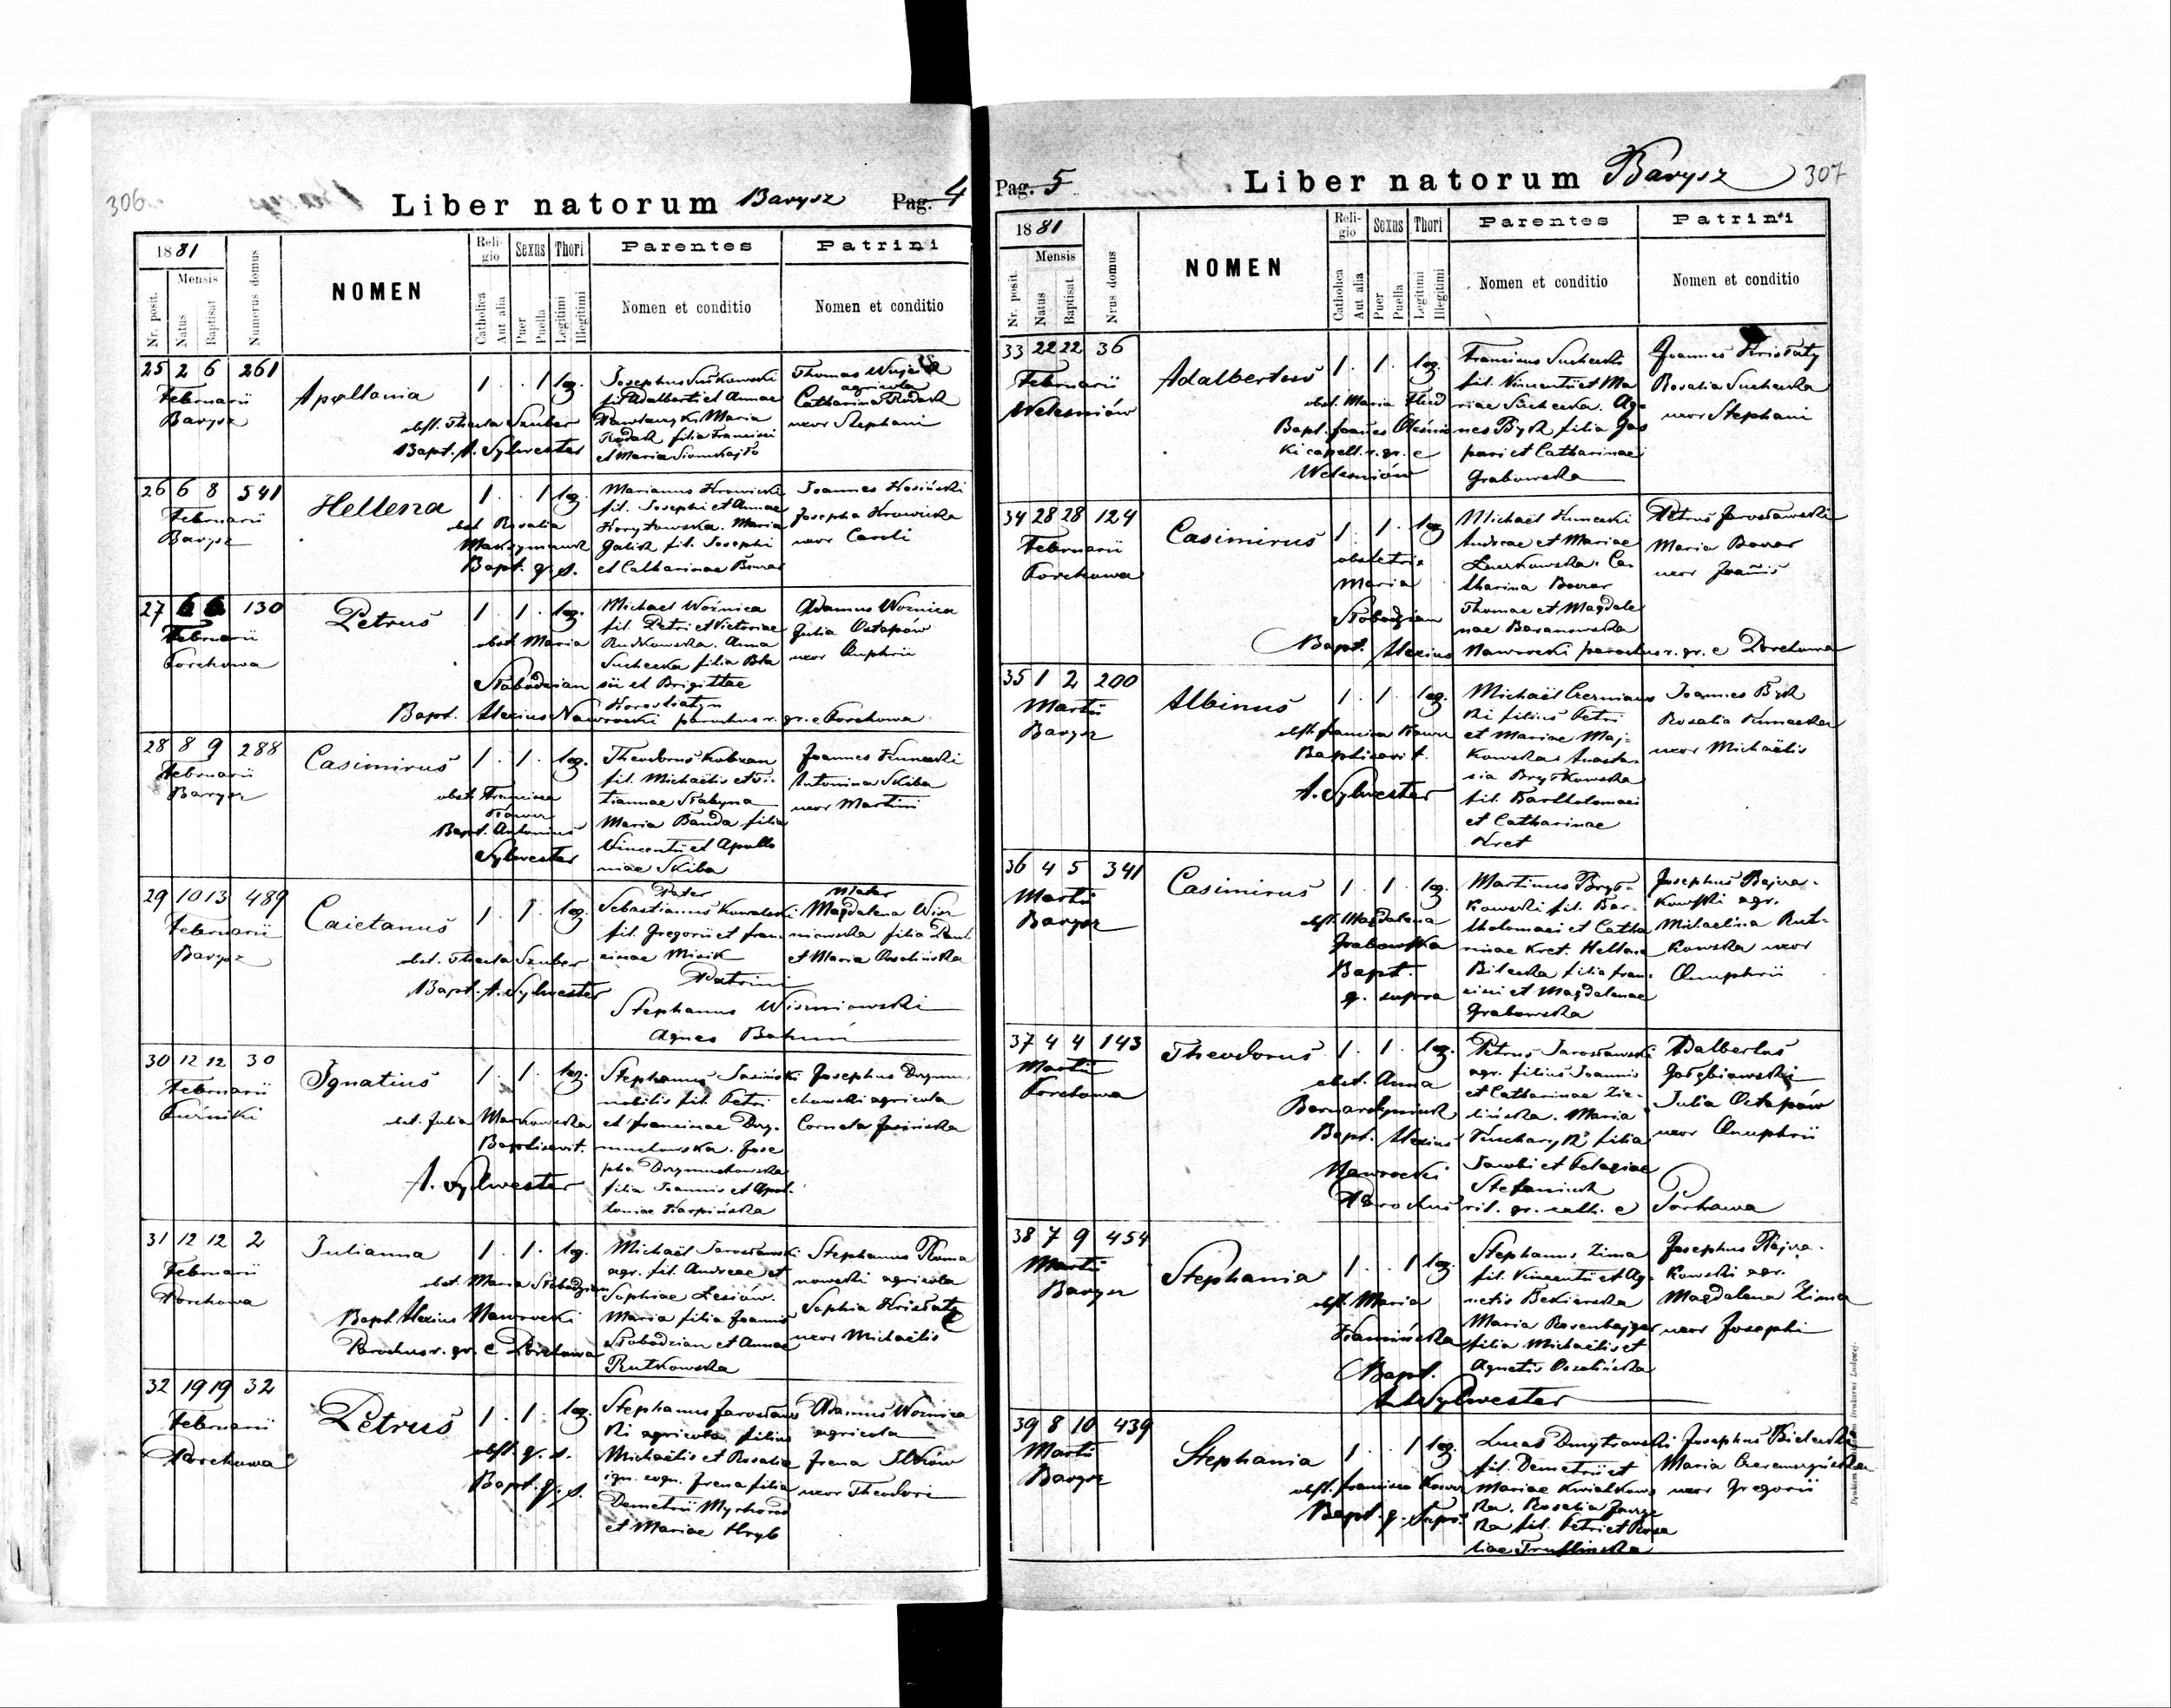 306
Liber natorum Barysz Pag. 4
1881
Mensis
Nr. posit.
Natus
Baptisat
Numerus domus
NOMEN
Religio
Catholica
Aut alia
Sexus
Puer
Puella
Thori
Legitimi
Illegitimi
Parentes
Nomen et conditio
Patrini
Nomen et conditio
25 2 6 261
Februarii
Barysz
Apollonia
1 . . 1 leg.
obst. Thecla Szuber
Bapt. A. Sylwester
Josephus
fil Adalberti et Annae
Maria
Rudak filia Francisci
et Maria
Thomas
agricola
Catharina Rudak
uxor Stephani
26 6 8 541
Februarii
Barysz
Hellena
1 . . 1 leg.
obst Rosalia
Bapt. q. s.
Marianus Krowicki
fil. Josephi et Annae
Korytowska. Maria
Galik fil. Josephi
et Catharinae Bowar
Joannes Kosiński
Josepha Krowicka
uxor Caroli
27 6 6 130
Februarii
Porchowa
Petrus
1 . 1 . leg.
obst. Maria
Słobodzian
Bapt. Alexius Nawrocki parochus r. gr. e Porchowa
Michael Woźnica
fil. Petri et Victoriae
Rutkowska. Anna
Suchecka filia Bla
sii et Brigittae
Adamus Woznica
Julia Ostapów
uxor Onuphrii
28 8 9 288
Februarii
Barysz
Casimirus
1 . 1 . leg.
obst. Francisca
Bapt. Antonius
Sylwester
Theodorus Kobzan
fil. Michaëlis et
Maria Banda filia
Vincentii et Apollo
niae Skiba
Joannes Kunecki
Antonina Skiba
uxor Martini
29 10 13 489
Februarii
Barysz
Caietanus
1 . 1 . leg.
obst. Thecla Szuber
Bapt. A. Sylwester
Pater
Sebastianus Kowalski
fil. Gregorii et Fran-
cinae Misik
Mater
Magdalena Wisz
niowska filia Pauli
et Maria
Patrini
Stephanus Wiszniowski
Agnes
30 12 12 30
Februarii
Kuźniki
Ignatius
1 . 1 . leg.
obst. Julia Markowska
Baptisavit.
A. Sylwester
Stephanus Jasiński
nobilis fil. Petri
et Francinae Dzy-
muchowska. Jose
pha Dzymuchowska
filia Joannis et Apol-
loniae Karpińska
Josephus Dzymu
chowski agricola
Cornela Jasińska
31 12 12 2
Februarii
Porchowa
Julianna
1 . 1 . leg.
obst. Maria Słobodzian
Bapt. Alexius Nawrocki
Parochus r. gr. e Porchowa
Michaël Jarosławski
agr. fil. Andreae et
Sophiae Lesiów.
Maria filia Joannis
Słobodzian et Annae
Rutkowska
Stephanus Roma
nowski agricola
Sophia Krisfaty
uxor Michaëlis
32 19 19 32
Februarii
Porchowa
Petrus
1 . 1 . leg.
obst. q. s.
Bapt. q. s.
Stephanus Jarosławs
ki agricola filius
Michaëlis et Rosalia
ign. cogn. Irena filia
Demetrii Myrhorod
et Mariae Hryb
Adamus Woznica
agricola
Irena Ilków
uxor Theodori
Pag. 5
Liber natorum Barysz 307
1881
Mensis
Nr. posit.
Natus
Baptisat
Nrus domus
NOMEN
Religio
Catholica
Aut alia
Sexus
Puer
Puella
Thori
Legitimi
Illegitimi
Parentes
Nomen et conditio
Patrini
Nomen et conditio
33 22 22 36
Februarii
Welesniów
Adalbertus
1 . 1 . leg.
obst. Maria
Bapt. Joañes Oleśnic
ki capell. r. gr. e
Welesniów
Francisus Suchecki
fil. Vincentii et Ma
riae Suchecka. Ag-
nes Byk filia Gas
pari et Catharinae
Grabowska
Joannes Krisfaty
Rosalia Suchecka
uxor Stephani
34 28 28 124
Februarii
Porchowa
Casimirus
1 . 1 . leg
obstetrix
Maria
Słobodzian
Bapt. Alexius Nawrocki parochus r. gr. e Porchowa
Michaël Kunecki
Andreae et Mariae
Ca
tharina Bowar
Thomae et Magdale
nae Baranowska
Petrus Jarosławski
Maria Bowar
uxor Joañis
35 1 2 200
Martii
Barysz
Albinus
1 . 1 . leg.
obst. Francisca
Baptisavit.
A. Sylwester
Michaël Czerniaws
ki filius Petri
et Mariae Maj-
kowska Anasta-
sia Brytkowska
fil. Bartholomaei
et Catharinae
Kret
Joannes Byk
Rosalia Kunecka
uxor Michaëlis
36 4 5 341
Martii
Barysz
Casimirus
1 . 1 . leg.
obst. Magdalena
Grabowska
Bapt.
q. supra
Martinus Bryt-
kowski fil. Bar-
tholomaei et Catha
rinae Kret. Hellena
Bilecka filia Fran-
cisci et Magdalenae
Grabowska
Josephus Rajca-
kowski agr.
Michaelina Rut-
kowska uxor
Onuphrii
37 4 4 143
Martii
Porchowa
Theodorus
1 . 1 . leg.
obst. Anna
Bapt. Alexius
Nawrocki
Parochus rit. gr. cath. e Porhowa
Petrus Jarosławski
agr. filius Joannis
et Catharinae Zie-
lińska. Maria
filia
Jacobi et Pelagiae
Stefaniuk
Adalbertus
Gołębiowski
Julia Ostapów
uxor Onuphrii
38 7 9 454
Martii
Barysz
Stephania
1 . . 1 leg.
obst. Maria
Kamińska
Bapt.
A. Sylwester
Stephanus Zima
fil. Vincentii et Ag-
netis Bekierska
Maria Rozenbajger
filia Michaëlis et
Agnetis
Josephus Rajca-
kowski agr.
Magdalena Zima
uxor Josephi
39 8 10 439
Martii
Barysz
Stephania
1 . . 1 leg.
obst. Francisca
Bapt. q. supra
Lucas Dmytrowski
fil. Demetrii et
Mariae Kwiatkows
ka. Rosalia
ka fil. Petri et Rosa
liae
Josephus Bielecki
Maria
uxor Gregorii